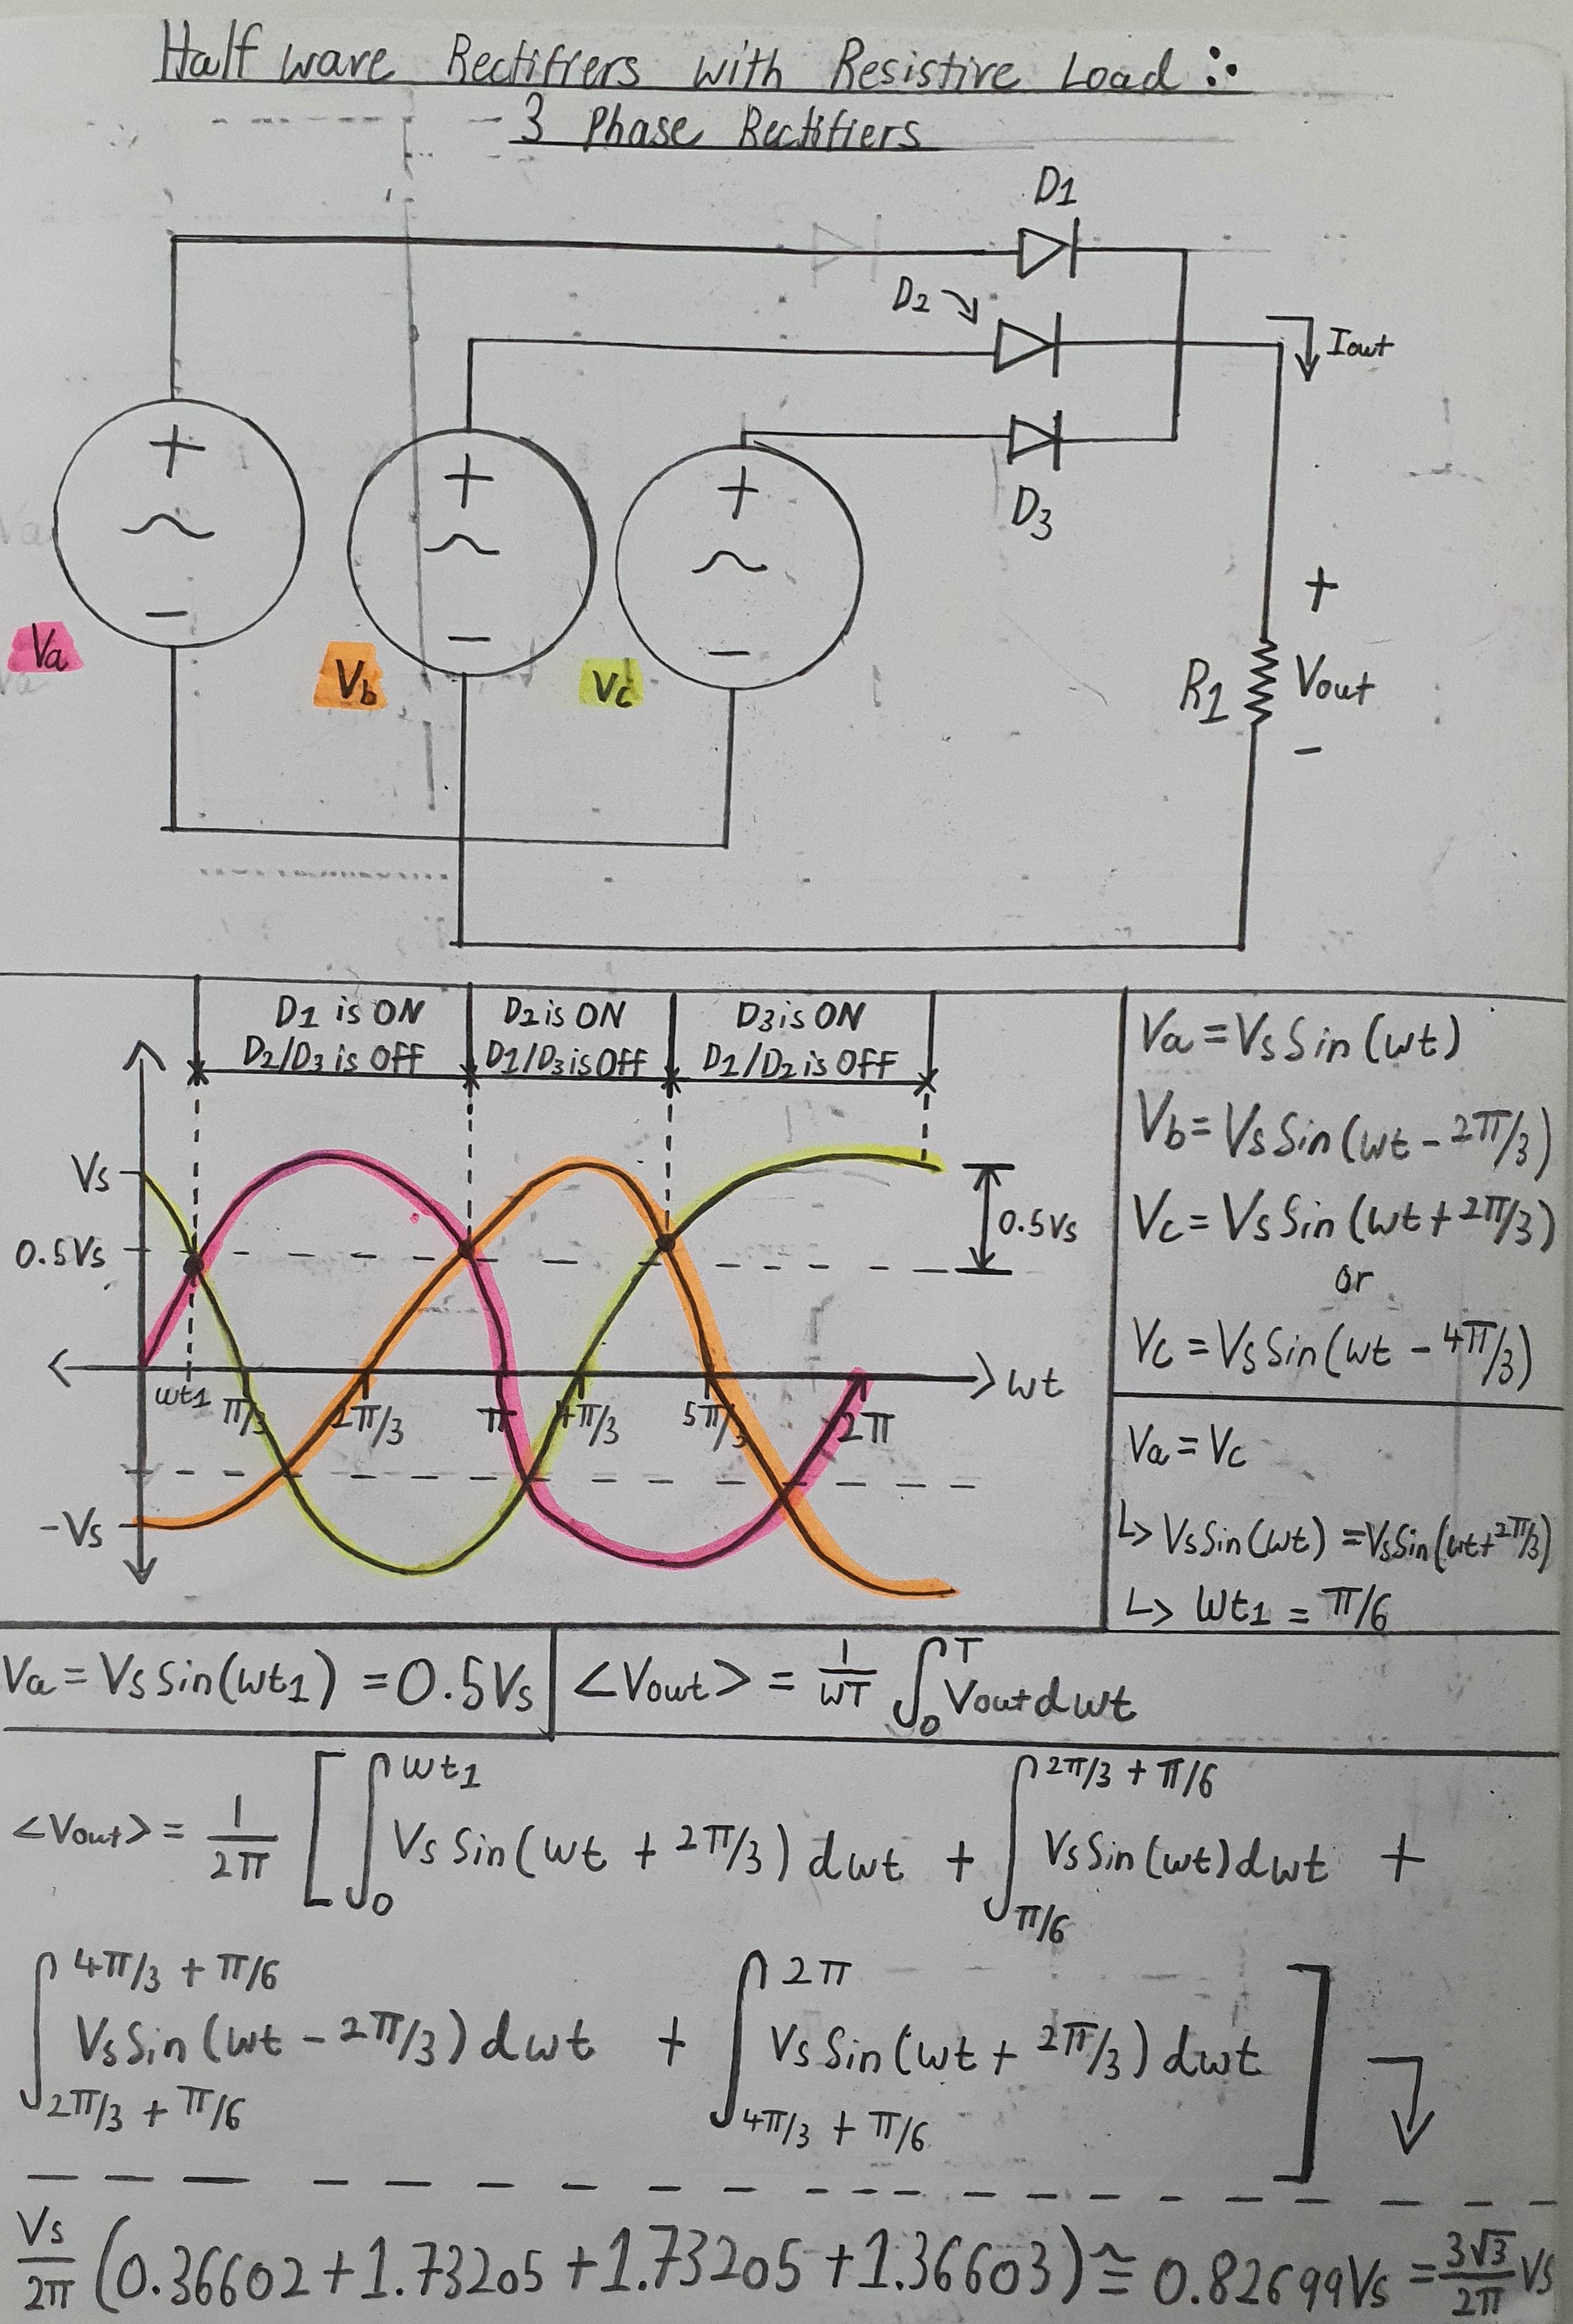 Half wave Rectifiers with Resistive Load :•
3 Phase Rectifiers
D1
D2
Iout
+
+
+
D3
+
−
−
−
Va
Vb
Vc
R1
Vout
−
D1 is ON
D2/D3 is OFF
D2 is ON
D1/D3 is OFF
D3 is ON
D1/D2 is OFF
Vs
0.5Vs
0.5Vs
-Vs
wt1
π/3
2π/3
π
4π/3
5π/3
2π
wt
Va = Vs Sin(wt)
Vb = Vs Sin(wt - 2π/3)
Vc = Vs Sin(wt + 2π/3)
or
Vc = Vs Sin(wt - 4π/3)
Va = Vc
↳ Vs Sin(wt) = Vs Sin(wt + 2π/3)
↳ wt1 = π/6
Va = Vs Sin(wt1) = 0.5Vs
<Vout> = 1/wT ∫0^T Vout dwt
<Vout> = 1/2π [ ∫0^wt1 Vs Sin(wt + 2π/3) dwt + ∫π/6^2π/3 + π/6 Vs Sin(wt) dwt +
∫2π/3 + π/6^4π/3 + π/6 Vs Sin(wt - 2π/3) dwt + ∫4π/3 + π/6^2π Vs Sin(wt + 2π/3) dwt ]
Vs/2π (0.36602 + 1.73205 + 1.73205 + 1.36603) ≅ 0.82699Vs = 3√3/2π Vs